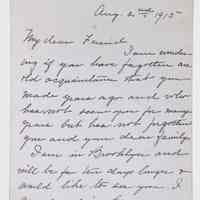 Aug. 2nd 1915
My dear Friend
I am wonder-
ing if you have forgotten an
old acquaintance that you
made years ago and who
has not seen you for many
years but has not forgotten
you and your dear family
I am in Brooklyn and
will be for ten days longer &
would like to see you. I